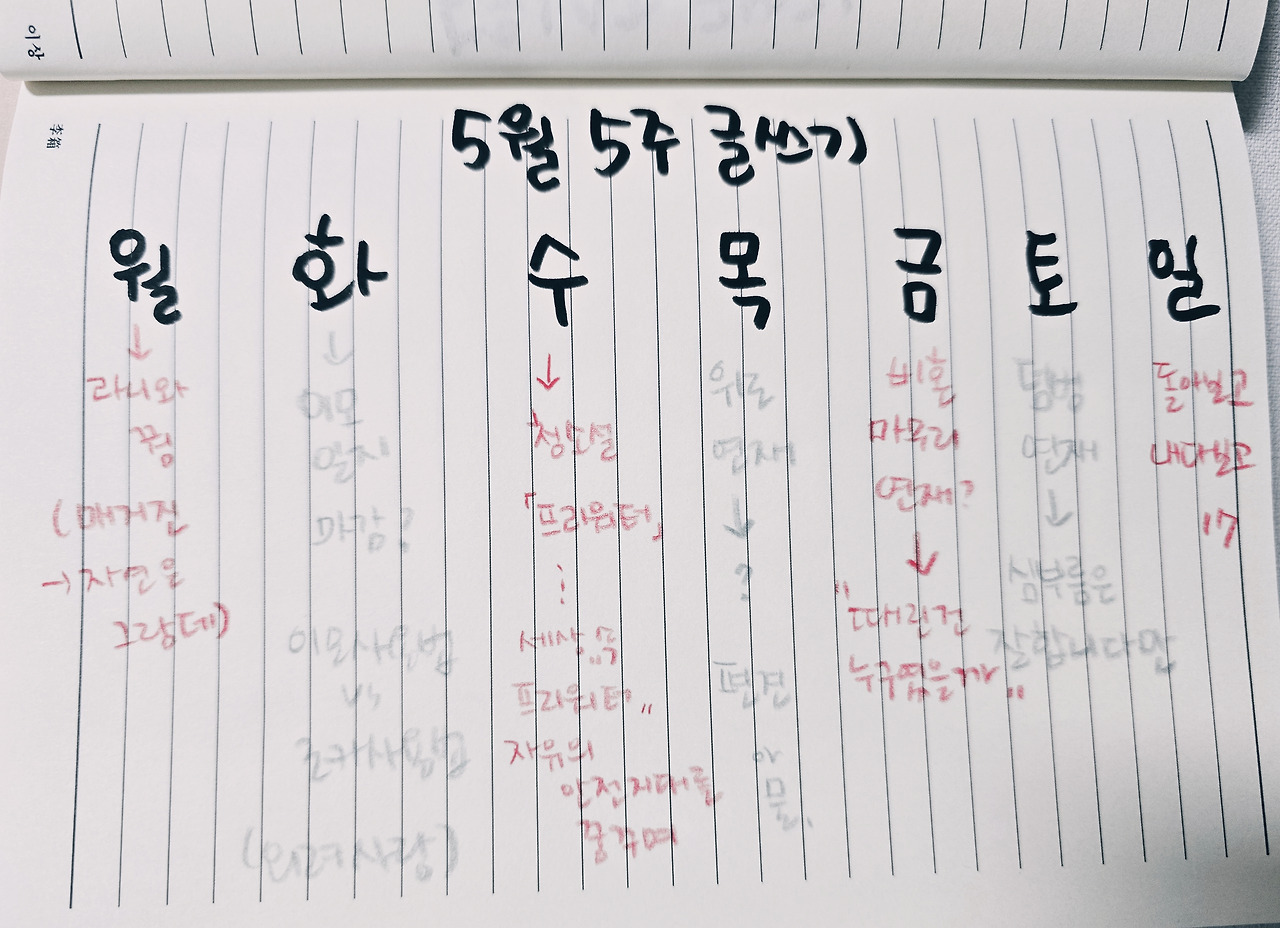 이상
李箱
5월 5주 글쓰기
월 화 수 목 금 토 일
↓
라니와
꿩
(매거진
→자연은
그랑데)
↓
이모
일지
마감?
이모사용법
vs
조카사용법
(외려사랑)
↓
청소설
「프라워터」
세상 속
프라워터"
자유의
안전지대를
꿈꾸며
위로
연재
↓
?
편견
비혼
마무리
연재?
↓
"때린건
누구였을까"
덤벙
연재
↓
심부름은
잘합니다만
돌아보고
내다보고
17